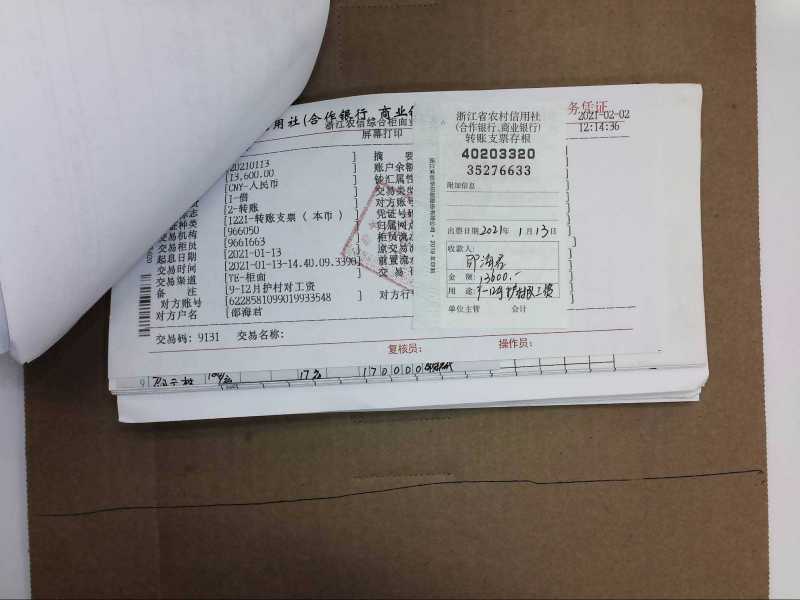 用社(合作银行、商业
务凭证
浙江农信综合柜面业
屏幕打印
2021-02-02
12:14:36
[20210113 ] 摘 要
[13,600.00 ] 账户余额
[CNY-人民币 ] 钞汇属性
[1-借 ] 交易类型
标志 [2-转账 ] 对方账号
证种类 [1221-转账支票(本币) ] 凭证号码
交易机构 [966050 ] 归属网点
交易柜员 [9661663 ] 柜员流水
起息日期 [2021-01-13 ] 原交易
交易时间 [2021-01-13-14.40.09.3390] 前置流水
交易渠道 [TE-柜面 ] 交易
备 注 [9-12月护村对工资 ]
对方账号 [6228581099019933548 ] 对方行
对方户名 [邵海君
交易码: 9131 交易名称:
复核员: 操作员:
浙江省农村信用社
(合作银行、商业银行)
转账支票存根
40203320
35276633
附加信息
出票日期 2021年 1月 13日
收款人:
邵海君
金 额: 13600.-
用 途: 9-12月护村队工资
单位主管 会计
9
17
170000